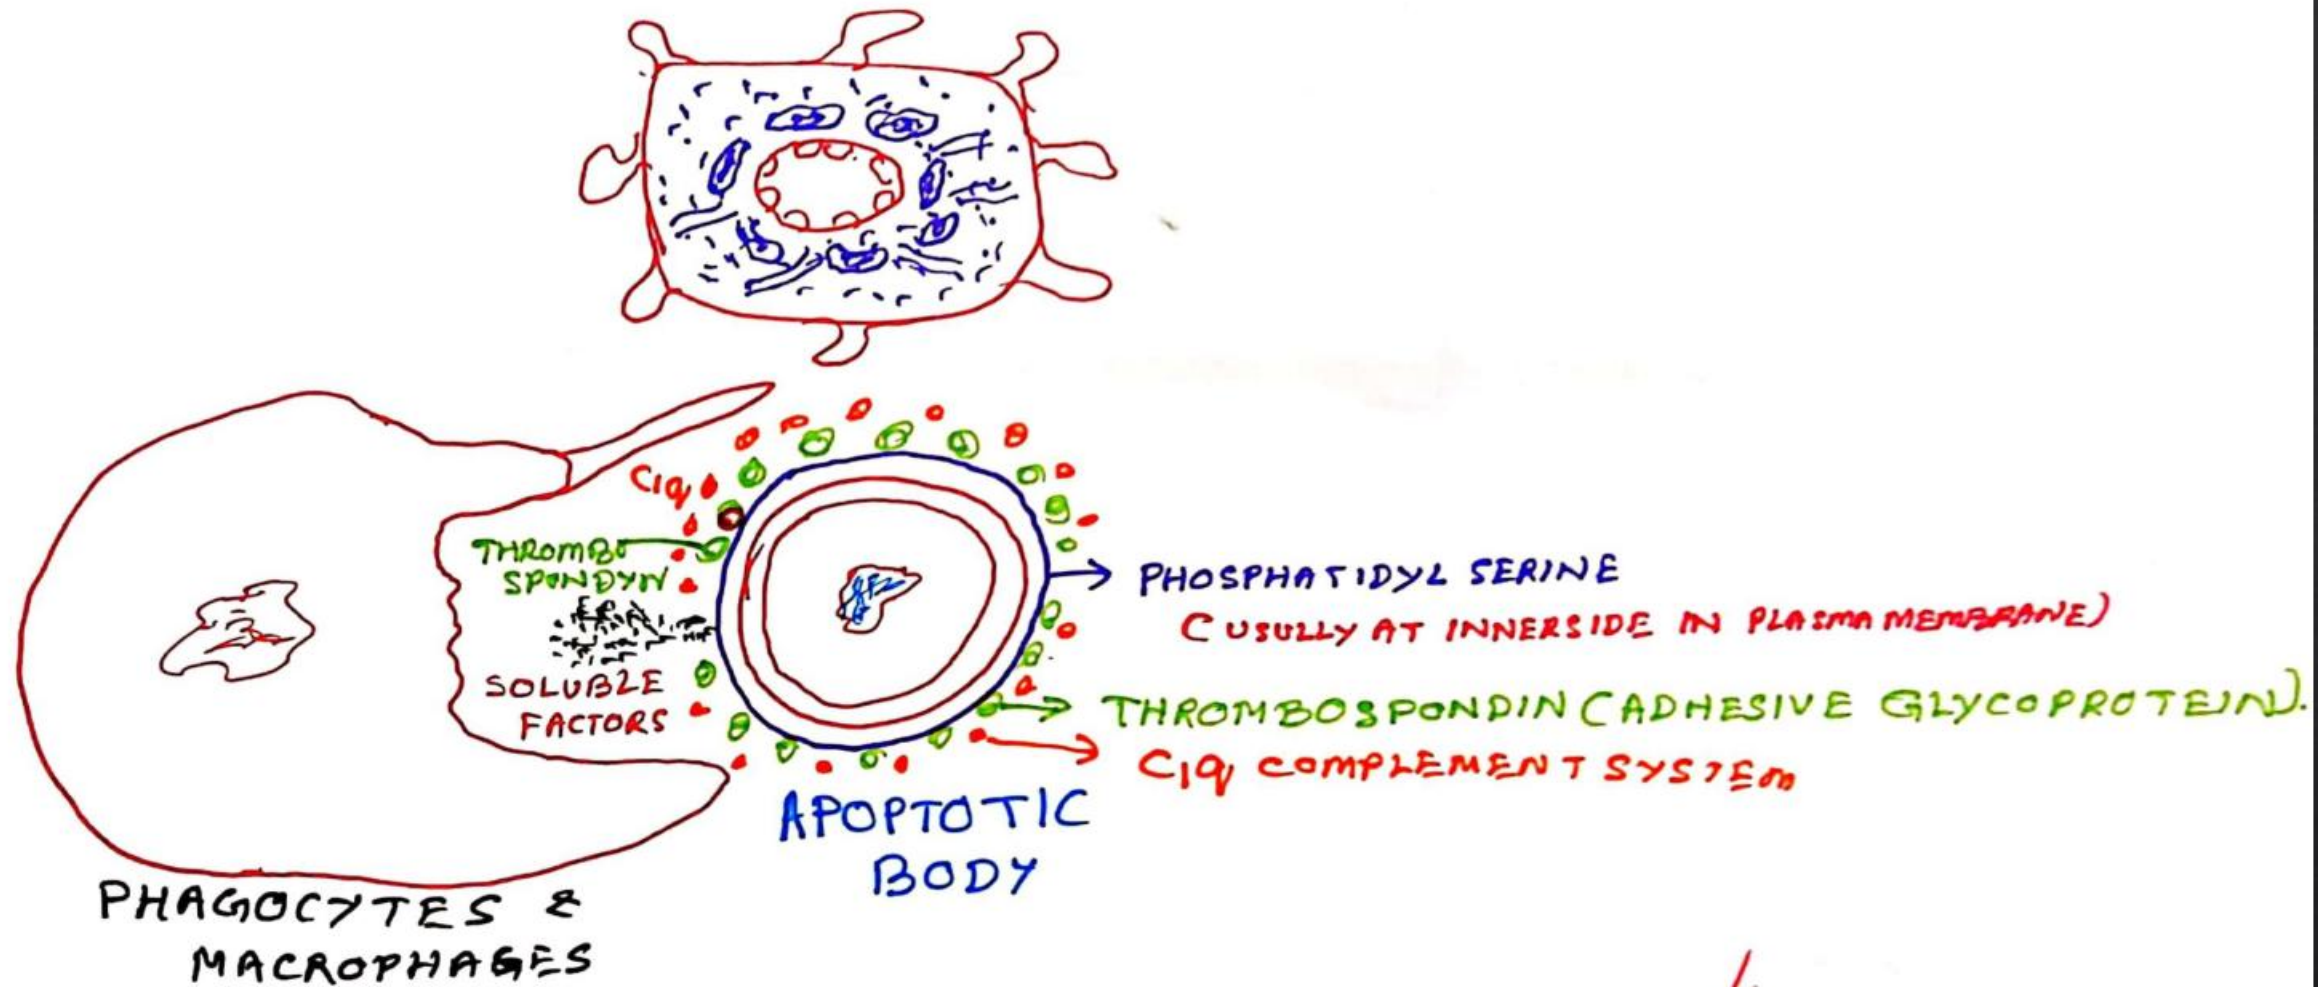 C1q
THROMBO
SPONDYN
SOLUBLE
FACTORS
PHOSPHATIDYL SERINE
( USULLY AT INNERSIDE IN PLASMA MEMBRANE)
THROMBOSPONDIN (ADHESIVE GLYCOPROTEIN).
C1q COMPLEMENT SYSTEM
APOPTOTIC
BODY
PHAGOCYTES &
MACROPHAGES